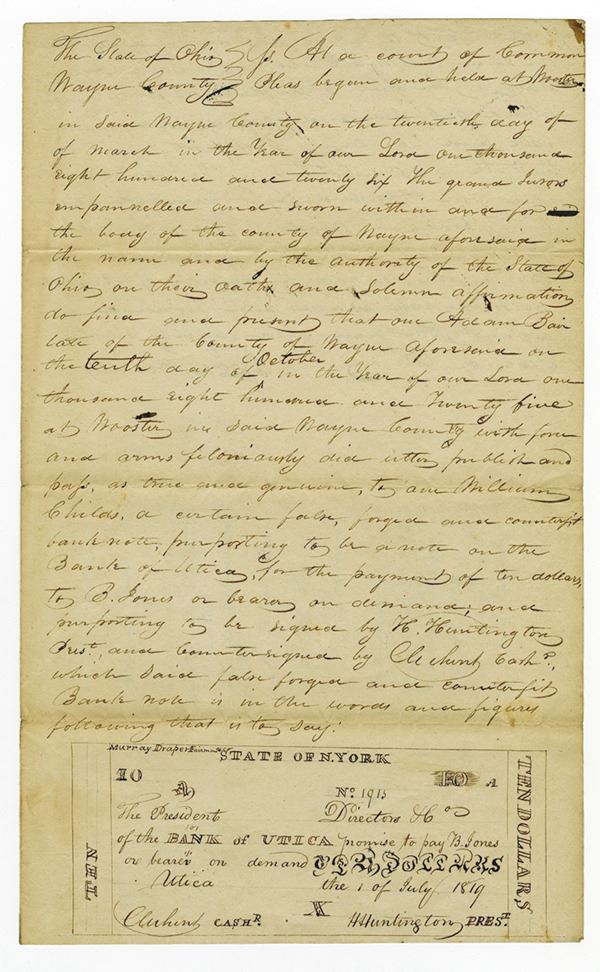 The State of Ohio } Ss. At a court of Common
Wayne County } Pleas began and held at Wooster
in said Wayne County on the twentieth day of
of March in the Year of our Lord one thousand
eight hundred and twenty six the grand Jurors
empannelled and sworn within and for
the body of the county of Wayne aforesaid in
the name and by the authority of the State of
Ohio on their oaths and Solemn affirmation
do find and present that one Adam Bair
late of the County of Wayne aforesaid on
the tenth day of October in the Year of our Lord one
thousand eight hundred and Twenty five
at Wooster in said Wayne County with force
and arms feloniously did utter publish and
pass, as true and genuine, to one William
Childs, a certain false, forged and counterfit
bank note, purporting to be a note on the
Bank of Utica, for the payment of ten dollars,
to B. Jones or bearer on demand; and
purporting to be signed by H. Huntington
Prest, and Countersigned by Cash.,
which said false forged and counterfit
Bank note is in the words and figures
following that is to say:
Murray Draper
STATE OF N. YORK
10 A No. 1915 10 A
The President Directors & Co
of the BANK of UTICA promise to pay B. Jones
or bearer on demand TEN DOLLARS
Utica the 1 of July 1819
X
CASHR. HHuntington PREST.
TEN
TEN DOLLARS